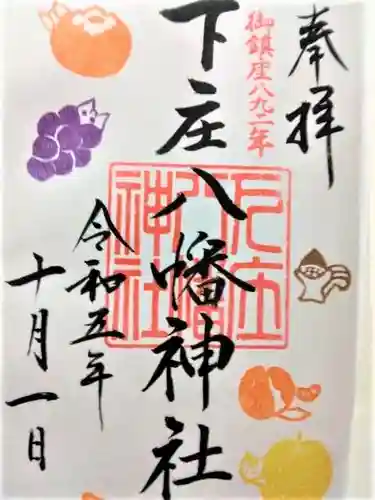 奉拝
御鎮座八九二年
下庄八幡神社
下庄八幡神社
令和五年
十月一日